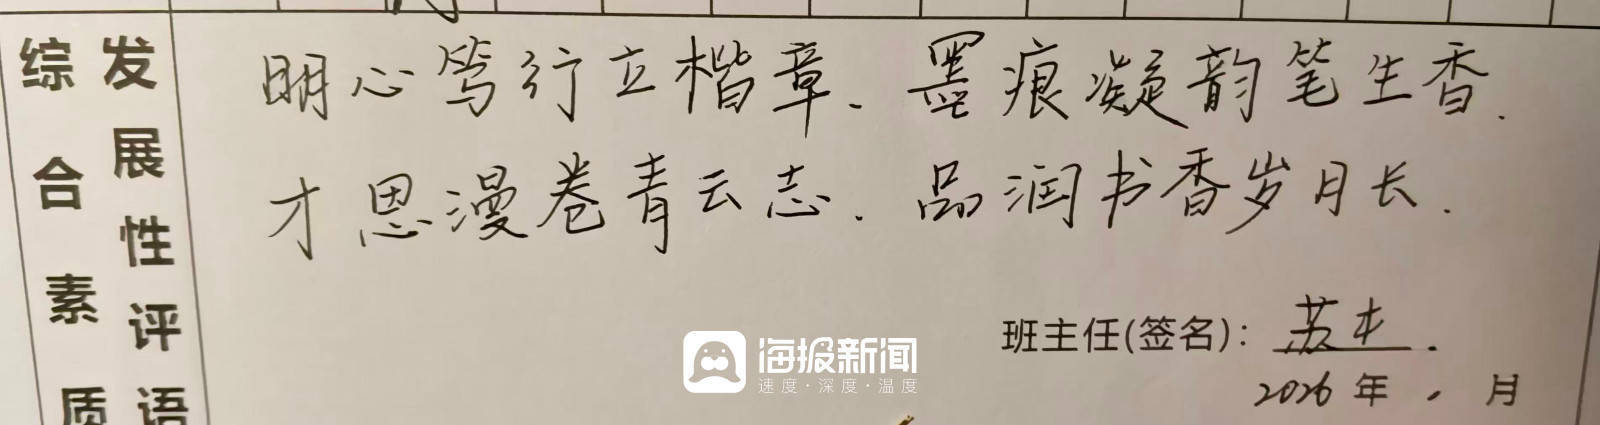 综合素质
发展性评语
明心笃行立楷章．墨痕凝韵笔生香．
才思漫卷青云志．品润书香岁月长．
班主任(签名)：苏
2026年 月
海报新闻
速度·深度·温度